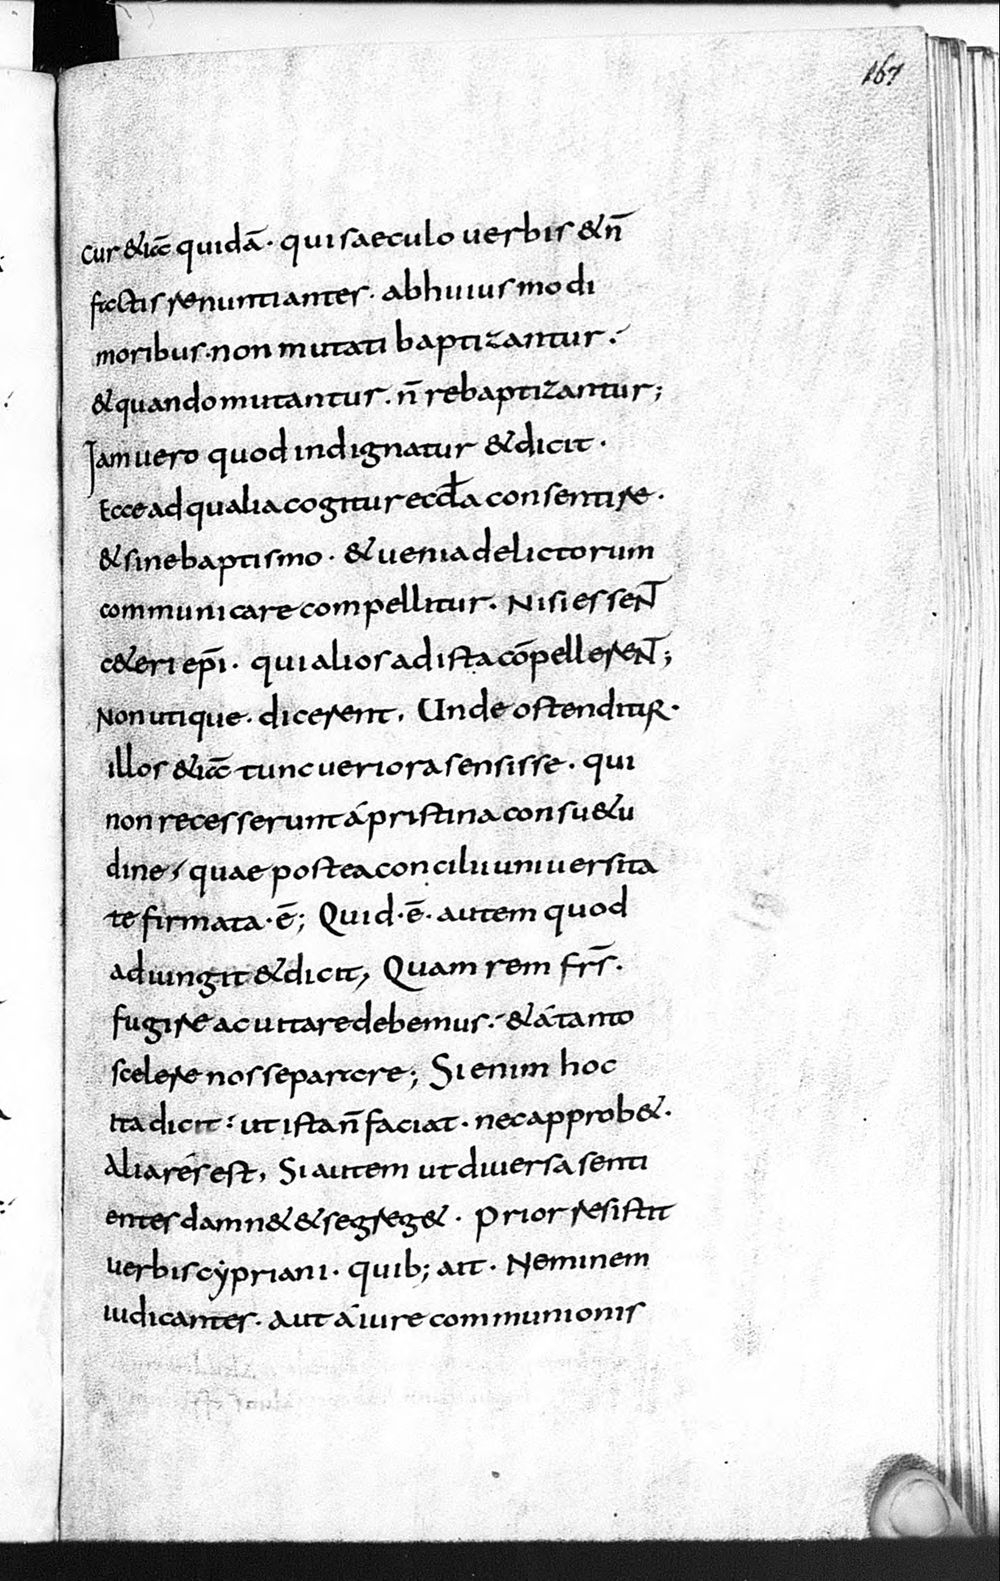 167
cur &iã quidã· qui saeculo uerbis & n̄
factis renuntiantes· ab huiusmodi
moribus· non mutati baptizantur·
& quando mutantur· n̄ rebaptizantur;
Iam uero quod indignatur & dicit·
Ecce ad qualia cogitur eccła consentire·
& sine baptismo· & uenia delictorum
communicare compellitur· Nisi essent
c&eri ep̄i· qui alios ad ista cōpellerent;
Non utique· dicerent, Unde ostenditur·
illos &iã tunc ueriora sensisse· qui
non recesserunt á pristina consu&u
dine, quae postea concilii uniuersita
te firmata· ē; Quid· ē· autem quod
adiungit & dicit, Quam rem fr̄s·
fugire ac uitare debemus· & á tanto
scelere nos separare; Si enim hoc
ita dicit· ut ista n̄ faciat· nec approb&·
Alia rés est, Si autem ut diuersa senti
entes damn& & segreg&· Prior resistit
uerbis cẏpriani· quib; ait· Neminem
iudicantes· aut á iure communionis